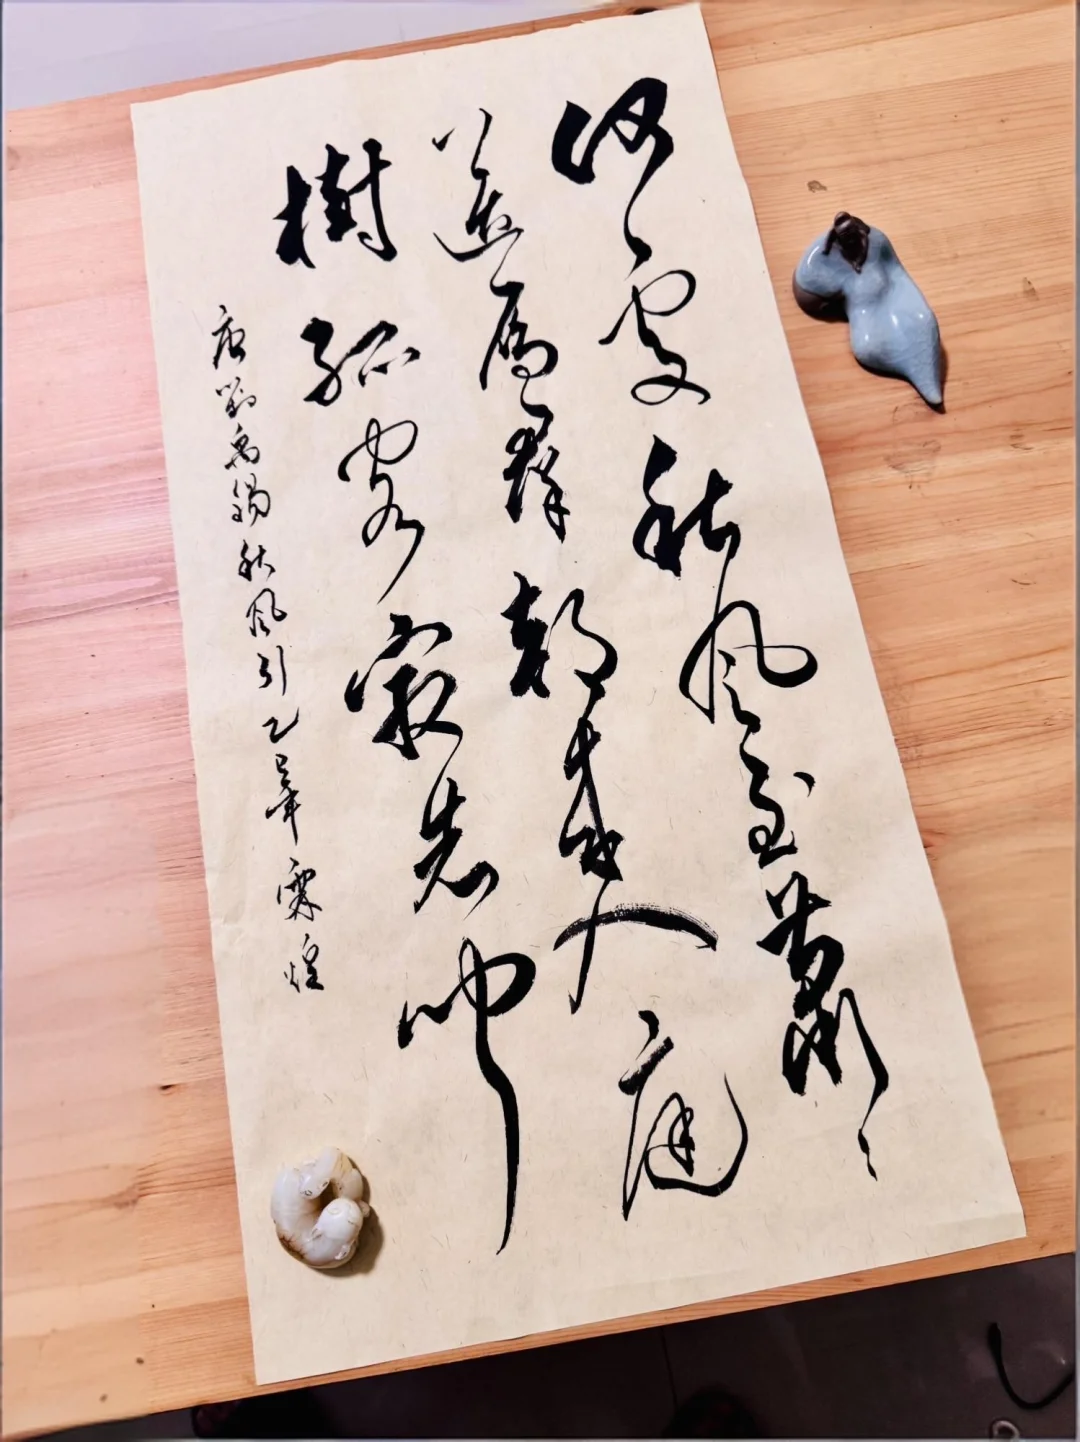 何處秋風至蕭〻
送雁群朝來入庭
樹孤客最先聞
唐劉禹錫秋風引乙巳年霖煌